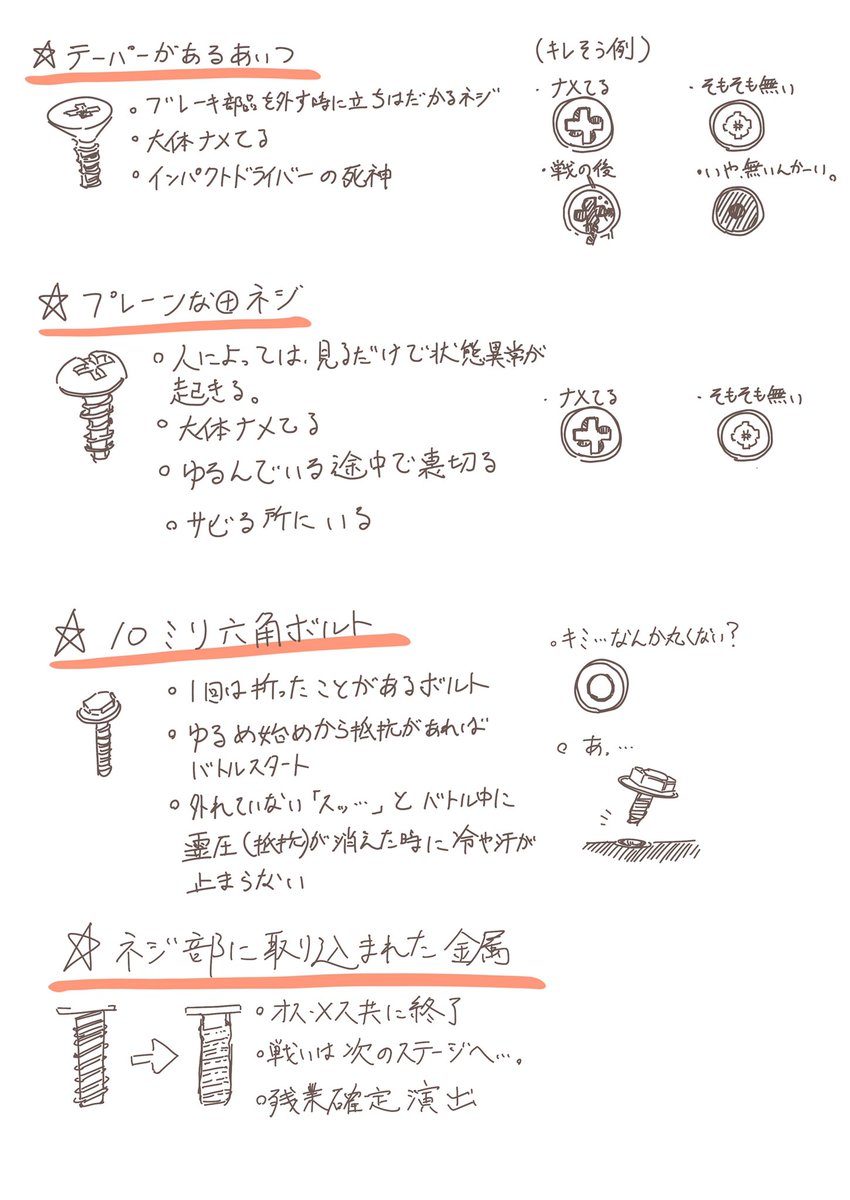 ☆テーパーがあるあいつ
。ブレーキ部品を外す時に立ちはだかるネジ
。大体ナメてる
。インパクトドライバーの死神
(キレそう例)
・ナメてる
・そもそも無い
・戦の後
・いや、無いんかーい。
☆プレーンな⊕ネジ
。人によっては、見るだけで状態異常が
起きる。
。大体ナメてる
。ゆるんでいる途中で裏切る
。サビる所にいる
・ナメてる
・そもそも無い
☆10ミリ六角ボルト
。1回は折ったことがあるボルト
。ゆるめ始めから抵抗があれば
バトルスタート
。外れていない「スッ…」とバトル中に
霊圧(抵抗)が消えた時に冷や汗が
止まらない
。キミ…なんか丸くない?
。あ、…
☆ネジ部に取り込まれた金属
。オス・メス共に終了
。戦いは次のステージへ…。
。残業確定演出